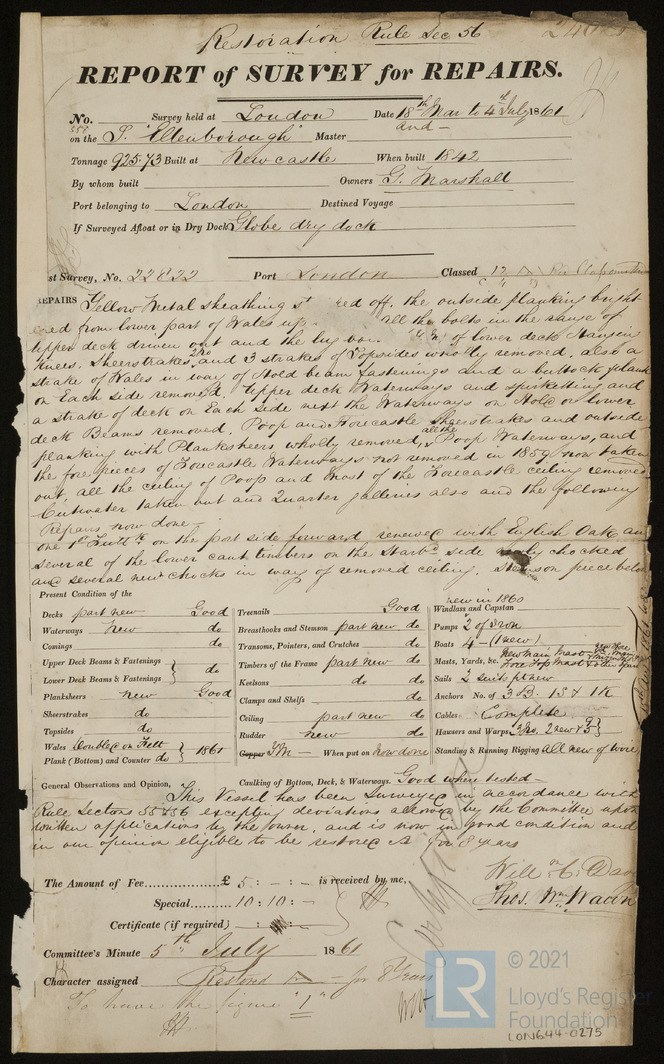 Restoration Rule Sec 56
REPORT of SURVEY for REPAIRS.
No. Survey held at London Date 18th Mar to 4th July 1861
on the S. "Ellenborough" Master and -
Tonnage 925.73 Built at Newcastle When built 1842
By whom built Owners G. Marshall
Port belonging to London Destined Voyage
If Surveyed Afloat or in Dry Dock Globe dry dock
st Survey, No. 22822 Port London Classed 12 A
REPAIRS Yellow Metal sheathing st red off, the outside planking bright
ened from lower part of Wales up all the bolts in the range of
upper deck driven out and the of lower deck Hanging
Knees. Sheerstrakes, and 3 strakes of Topsides wholly removed, also a
strake of Wales in way of Hold beam fastenings and a buttock plank
on Each side removed, Upper deck Waterways and spirketting and
a strake of deck on Each side next the Waterways on Hold or lower
deck Beams removed. Poop and Forecastle Sheerstrakes and outside
planking with Planksheers wholly removed, all the Poop Waterways, and
the fore pieces of Forecastle Waterways not removed in 1859 now taken
out, all the ceiling of Poop and most of the Forecastle ceiling removed
Cutwater taken out and Quarter galleries also and the following
Repairs now done -
One 1st Futtk on the port side forward renewed with English Oak an
several of the lower cant timbers on the Starbd side chocked
and several new chocks in way of removed ceiling. Stemson piece below
Present Condition of the
Decks part new Good
Waterways New do
Comings do
Upper Deck Beams & Fastenings
Lower Deck Beams & Fastenings } do
Planksheers new Good
Sheerstrakes do
Topsides do
Wales Doubled on Felt
Plank (Bottom) and Counter do } 1861
Treenails Good
Breasthooks and Stemson part new do
Transoms, Pointers, and Crutches do
Timbers of the Frame part new do
Keelsons do
Clamps and Shelfs do
Ceiling part new do
Rudder new do
Copper YM - When put on Now done
new in 1860
Windlass and Capstan
Pumps 2 of Iron
Boats 4 - (1 new)
Masts, Yards, &c. New Main Mast
Fore Top Mast & other spars
Sails 2 suits pt new
Anchors No. of 3 B. 1 S & 1 K
Cables Complete
Hausers and Warps
Standing & Running Rigging all new of wire
General Observations and Opinion, Caulking of Bottom, Deck, & Waterways. Good where tested -
This Vessel has been Surveyed in accordance with
Rule Sections 55 & 56 excepting deviations allowed by the Committee upon
written applications by the owner, and is now in good condition and
in our opinion eligible to be restored A for 8 years
Willm C. Davy
Thos. Wm Wawn
The Amount of Fee £ 5 : - : - is received by me,
Special 10 : 10 : -
Certificate (if required) : :
Committee's Minute 5th July 1861
Character assigned Restored A - for 8 Years
To have the figure "1"
© 2021
LR
Lloyd's Register
Foundation
LON644-0275